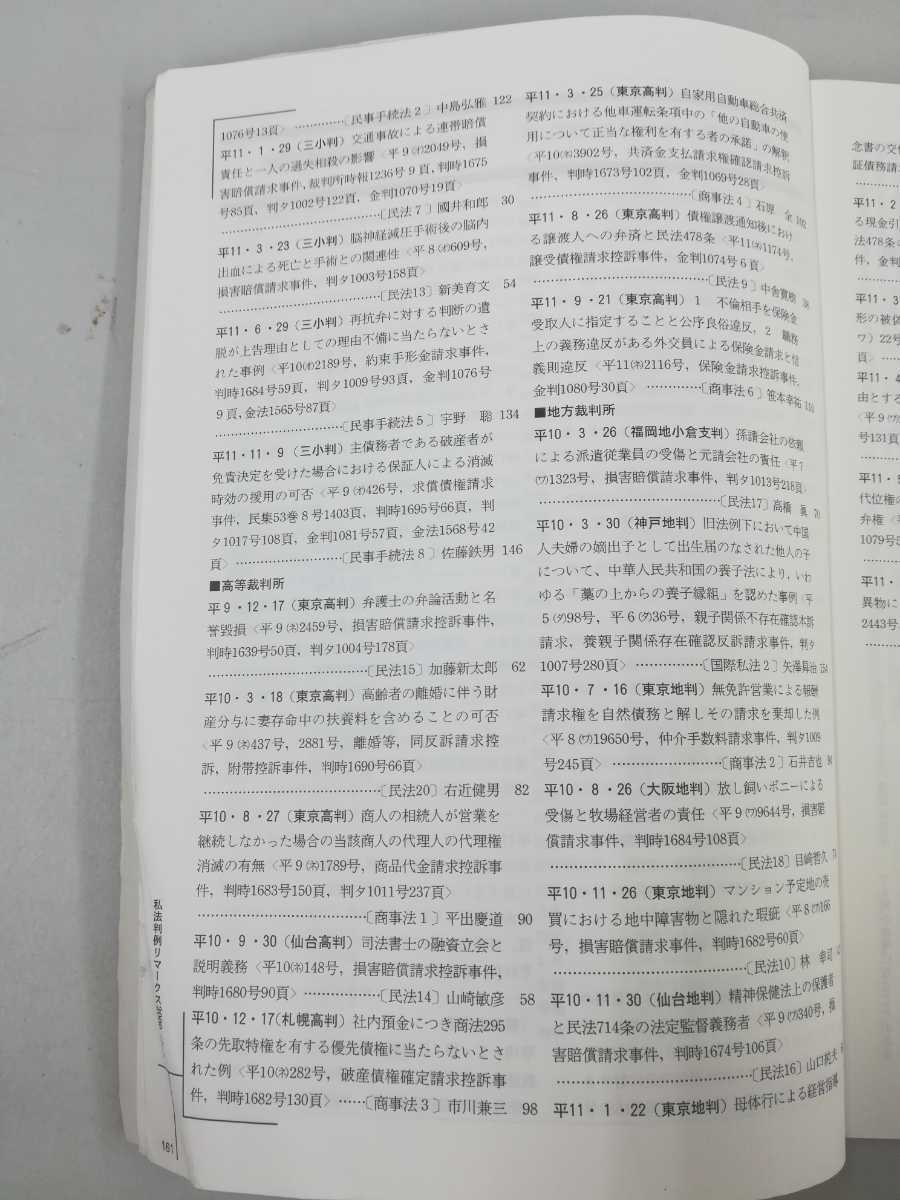 1076号13頁〉 ……………〔民事手続法2〕中島弘雅 122
平11・1・29（三小判）交通事故による連帯賠償
責任と一人の過失相殺の影響〈平9㈺2049号，損
害賠償請求事件，裁判所時報1236号9頁，判時1675
号85頁，判タ1002号122頁，金判1070号19頁〉
……………………………〔民法7〕國井和郎 30
平11・3・23（三小判）脳神経減圧手術後の脳内
出血による死亡と手術との関連性〈平8㈺609号，
損害賠償請求事件，判タ1003号158頁〉
……………………………〔民法13〕新美育文 54
平11・6・29（三小判）再抗弁に対する判断の遺
脱が上告理由としての理由不備に当たらないとさ
れた事例〈平10㈺2189号，約束手形金請求事件，
判時1684号59頁，判タ1009号93頁，金判1076号
9頁，金法1565号87頁〉
………………………〔民事手続法5〕宇野　聡 134
平11・11・9（三小判）主債務者である破産者が
免責決定を受けた場合における保証人による消滅
時効の援用の可否〈平9㈺426号，求償債権請求
事件，民集53巻8号1403頁，判時1695号66頁，判
タ1017号108頁，金判1081号57頁，金法1568号42
頁〉 …………………〔民事手続法8〕佐藤鉄男 146
■高等裁判所
平9・12・17（東京高判）弁護士の弁論活動と名
誉毀損〈平9㈭2459号，損害賠償請求控訴事件，
判時1639号50頁，判タ1004号178頁〉
……………………………〔民法15〕加藤新太郎 62
平10・3・18（東京高判）高齢者の離婚に伴う財
産分与に妻存命中の扶養料を含めることの可否
〈平9㈭437号，2881号，離婚等，同反訴請求控
訴，附帯控訴事件，判時1690号66頁〉
……………………………〔民法20〕右近健男 82
平10・8・27（東京高判）商人の相続人が営業を
継続しなかった場合の当該商人の代理人の代理権
消滅の有無〈平9㈭1789号，商品代金請求控訴事
件，判時1683号150頁，判タ1011号237頁〉
……………………………〔商事法1〕平出慶道 90
平10・9・30（仙台高判）司法書士の融資立会と
説明義務〈平10㈭148号，損害賠償請求控訴事件，
判時1680号90頁〉 ……………〔民法14〕山崎敏彦 58
平10・12・17（札幌高判）社内預金につき商法295
条の先取特権を有する優先債権に当たらないとさ
れた例〈平10㈭282号，破産債権確定請求控訴事
件，判時1682号130頁〉 ……〔商事法3〕市川兼三 98
平11・3・25（東京高判）自家用自動車総合共済
契約における他車運転条項中の「他の自動車の使
用について正当な権利を有する者の承諾」の解釈
〈平10㈭3902号，共済金支払請求権確認請求控訴
事件，判時1673号102頁，金判1069号28頁〉
……………………………〔商事法4〕石原　全 102
平11・8・26（東京高判）債権譲渡通知後におけ
る譲渡人への弁済と民法478条〈平11㈭1174号，
譲受債権請求控訴事件，金判1074号6頁〉
……………………………〔民法9〕中舎寛樹 38
平11・9・21（東京高判）1　不倫相手を保険金
受取人に指定することと公序良俗違反，2　職務
上の義務違反がある外交員による保険金請求と信
義則違反〈平11㈭2116号，保険金請求控訴事件，
金判1080号30頁〉 ……………〔商事法6〕笹本幸祐 110
■地方裁判所
平10・3・26（福岡地小倉支判）孫請会社の依頼
による派遣従業員の受傷と元請会社の責任〈平7
㈦1323号，損害賠償請求事件，判タ1013号218頁〉
……………………………〔民法17〕高橋　眞 70
平10・3・30（神戸地判）旧法例下において中国
人夫婦の嫡出子として出生届のなされた他人の子
について，中華人民共和国の養子法により，いわ
ゆる「藁の上からの養子縁組」を認めた事例〈平
5㈷98号，平6㈷36号，親子関係不存在確認本訴
請求，養親子関係存在確認反訴請求事件，判タ
1007号280頁〉 ……………〔国際私法2〕矢澤曻治 154
平10・7・16（東京地判）無免許営業による報酬
請求権を自然債務と解しその請求を棄却した例
〈平8㈦19650号，仲介手数料請求事件，判タ1009
号245頁〉 …………………〔商事法2〕石井吉也 94
平10・8・26（大阪地判）放し飼いポニーによる
受傷と牧場経営者の責任〈平9㈦9644号，損害賠
償請求事件，判時1684号108頁〉
……………………………〔民法18〕目﨑哲久 74
平10・11・26（東京地判）マンション予定地の売
買における地中障害物と隠れた瑕疵〈平8㈦166
号，損害賠償請求事件，判時1682号60頁〉
……………………………〔民法10〕林　幸司
平10・11・30（仙台地判）精神保健法上の保護者
と民法714条の法定監督義務者〈平9㈦340号，損
害賠償請求事件，判時1674号106頁〉
……………………………〔民法16〕山口純夫
平11・1・22（東京地判）母体行による経営指導
私法判例リマークス
161
念書の交
証債務請
平11・2
る現金引
法478条
件，金判
平11・3
形の被偽
ワ）22号
頁〉
平11・4
由とする
〈平9
号131頁
平11・
代位権の
弁権〈平
1079号
平11・
異物に
2443号